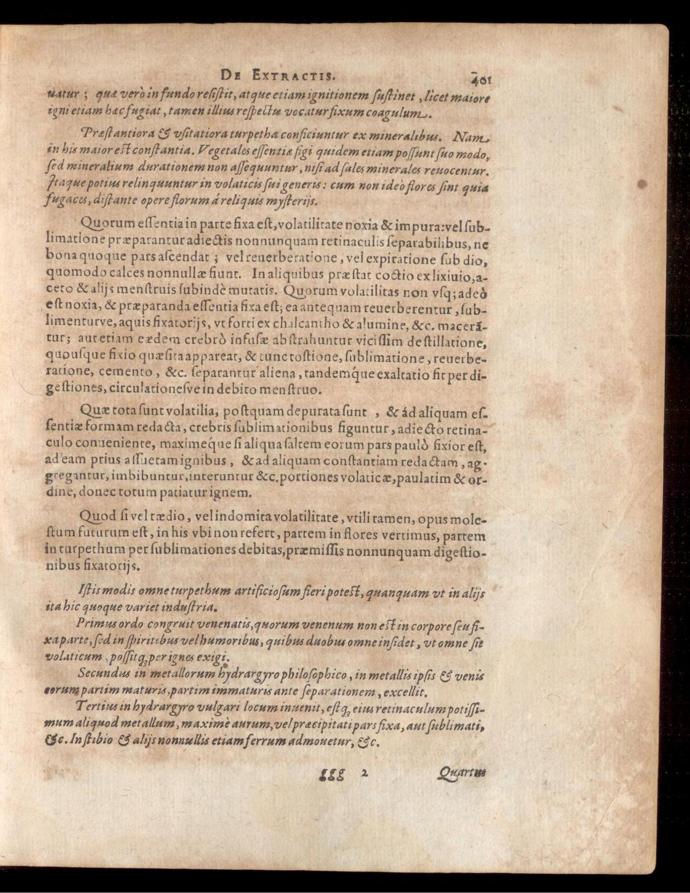 DE EXTRACTIS. 401
uatur ; quæ verò in fundo resistit, atque etiam ignitionem sustinet , licet maiore
igni etiam hæc fugiat, tamen illius respectu vocatur fixum coagulum.
Præstantiora & vsitatiora turpetha conficiuntur ex mineralibus. Nam
in his maior est constantia. Vegetales essentiæ figi quidem etiam possunt suo modo,
sed mineralium durationem non assequuntur, nisi ad sales minerales reuocentur.
Itaque potius relinquuntur in volaticis sui generis : cum non ideò flores sint quia
fugaces, distante opere florum à reliquis mysterijs.
Quorum essentia in parte fixa est, volatilitate noxia & impura: vel sub-
limatione præparantur adiectis nonnunquam retinaculis separabilibus, ne
bona quoque pars ascendat ; vel reuerberatione, vel expiratione sub dio,
quomodo calces nonnullæ fiunt. In aliquibus præstat coctio ex lixiuio, a-
ceto & alijs menstruis subindè mutatis. Quorum volatilitas non vsq; adeò
est noxia, & præparanda essentia fixa est; ea antequam reuerberentur, sub-
limenturve, aquis fixatorijs, vt forti ex chalcantho & alumine, &c. macerā-
tur; aut etiam eædem crebrò infusæ abstrahuntur vicissim destillatione,
quousque fixio quæsita appareat, & tunc tostione, sublimatione, reuerbe-
ratione, cemento , &c. separantur aliena, tandemque exaltatio fit per di-
gestiones, circulationesve in debito menstruo.
Quæ tota sunt volatilia, postquam depurata sunt , & ad aliquam es-
sentiæ formam redacta, crebris sublimationibus figuntur, adiecto retina-
culo conueniente, maximeque si aliqua saltem eorum pars paulò fixior est,
ad eam prius assuetam ignibus , & ad aliquam constantiam redactam , ag-
gregantur, imbibuntur, interuntur &c. portiones volaticæ, paulatim & or-
dine, donec totum patiatur ignem.
Quod si vel tædio, vel indomita volatilitate, vtili tamen, opus mole-
stum futurum est, in his vbi non refert, partem in flores vertimus, partem
in turpethum per sublimationes debitas, præmissis nonnunquam digestio-
nibus fixatorijs.
Istis modis omne turpethum artificiosum fieri potest, quanquam vt in alijs
ita hic quoque variet industria.
Primus ordo congruit venenatis, quorum venenum non est in corpore seu fi-
xa parte, sed in spiritibus vel humoribus, quibus duobus omne insidet, vt omne sit
volaticum , possitq; per ignes exigi.
Secundus in metallorum hydrargyro philosophico, in metallis ipsis & venis
eorum partim maturis, partim immaturis ante separationem, excellit.
Tertius in hydrargyro vulgari locum inuenit, estq; eius retinaculum potissi-
mum aliquod metallum, maximè aurum, vel præcipitati pars fixa, aut sublimati,
&c. In stibio & alijs nonnullis etiam ferrum admouetur, &c.
ggg 2 Quartus